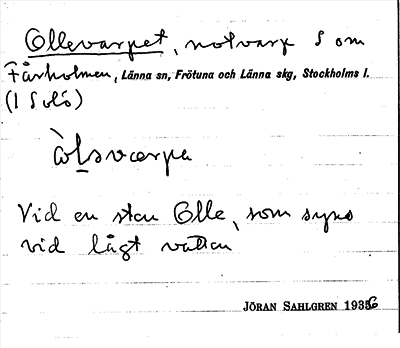 Ollevarpet, notvarp S om
Fårholmen, Länna sn, Frötuna och Länna skg, Stockholms l.
(I Solö)
Vid en sten Olle, som syns
vid lågt vatten
JÖRAN SAHLGREN 1936